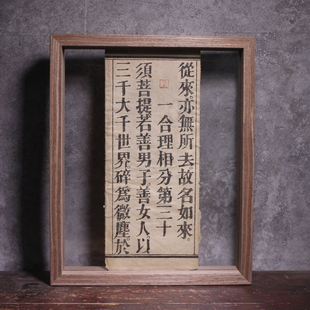 從來亦無所去故名如來
一合理相分第三十
須菩提若善男子善女人以
三千大千世界碎為微塵於